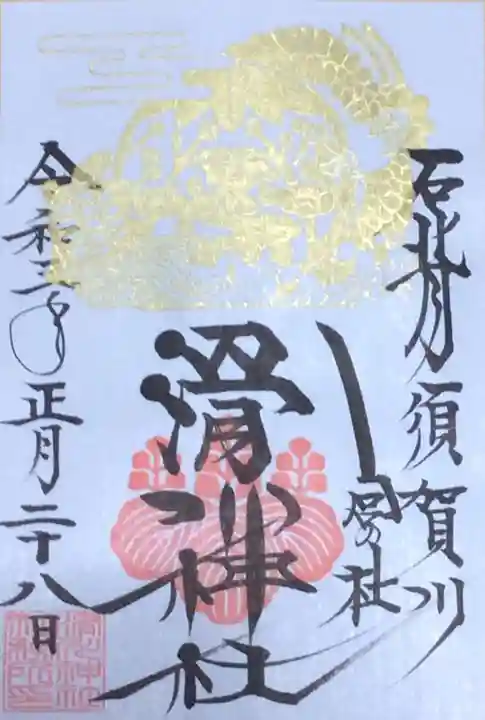 石背須賀川
滑川神社
令和三年正月二十八日